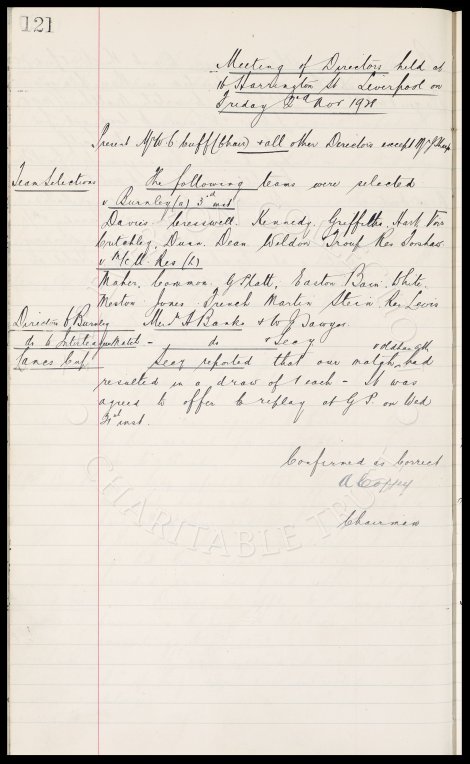 121
Meeting of Directors held at
16 Harrington St Liverpool on
Friday 2nd Nov 1928
Present Mr W C Cuff (Chair) & all other Directors except Mr J Sharp
Team Selections
The following teams were selected
v Burnley (a) 3rd inst
Davies Cresswell, Kennedy, Griffiths, Hart
Critchley, Dunn, Dean Weldon Troup Res
v M/c U Res (h)
Maher, Common, G Platt, Easton Bain. White.
Meston Jones French Martin Stein. Res Lewis
Directors to Burnley
Messrs A Banks & W J Sawyer
do to
Match -
do
& Secy
Lancs Cup
Secy reported that our match v Oldham Ath had
resulted in a draw of 1 each - It was
agreed to offer to replay at G.P. on Wed
inst.
Confirmed as Correct
A Coffey
Chairman
CHARITABLE TRUST